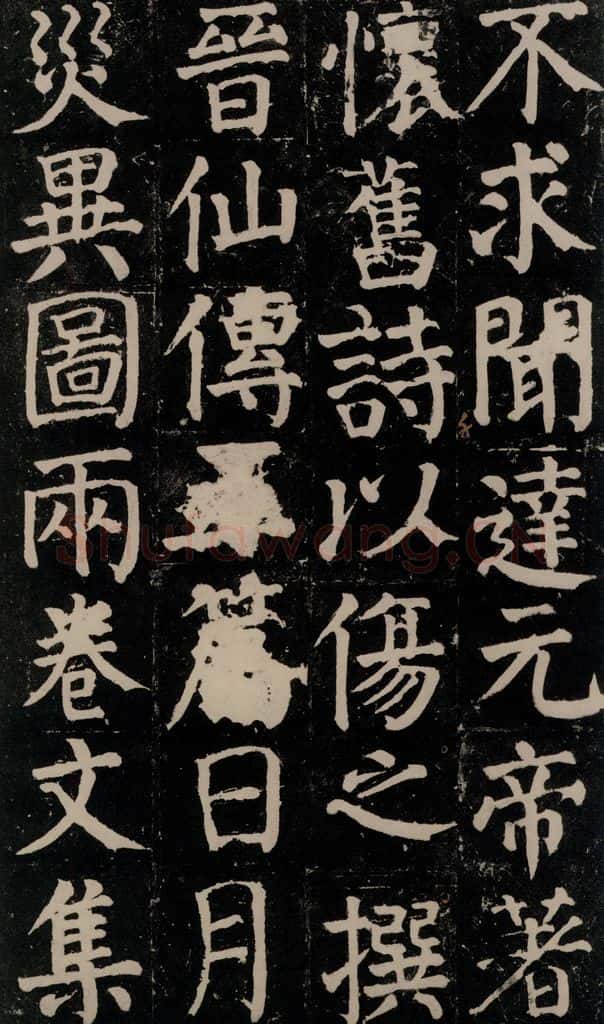 不求聞達元帝著
懷舊詩以傷之撰
晉仙傳五篇日月
災異圖兩卷文集
Shufawang.CN